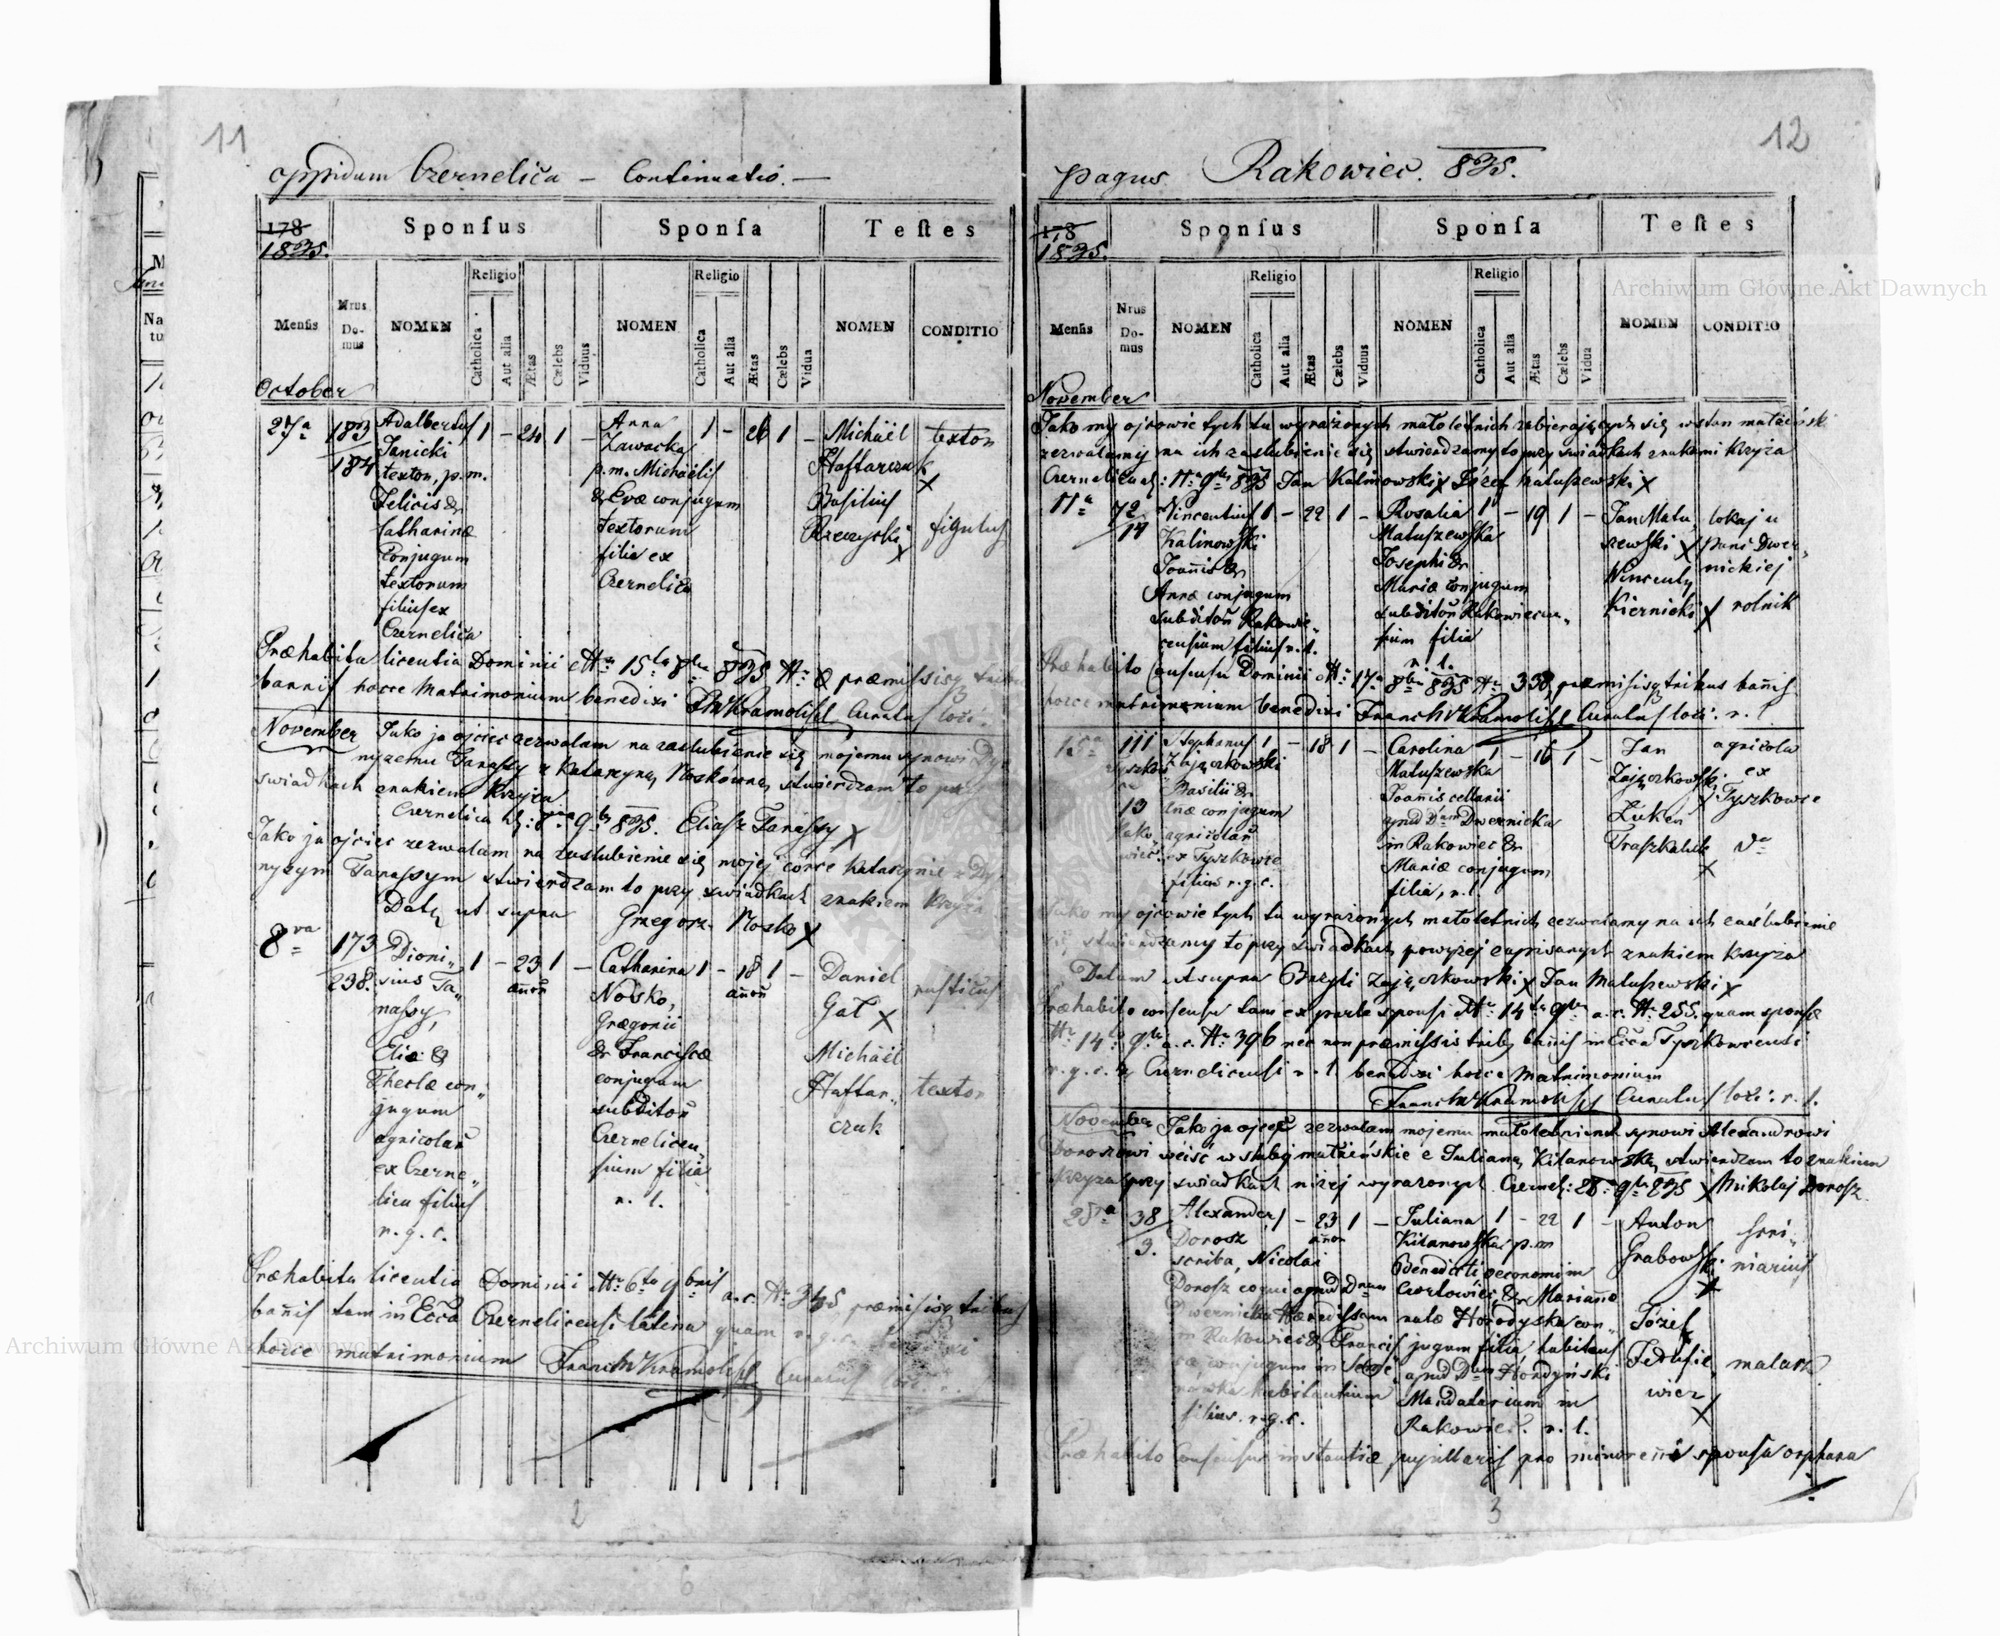 11
oppidum Czernelica – Continuatio. –
178
1835.
Sponſus
Sponſa
Teſtes
Menſis
Nrus Do-mus
NOMEN
Religio
Catholica
Aut alia
Ætas
Cælebs
Viduus
NOMEN
Religio
Catholica
Aut alia
Ætas
Cælebs
Vidua
NOMEN
CONDITIO
October
27a
183
184
Adalbertus
Janicki
textor, p.m.
Felicis &
Catharinæ
Conjugum
textorum
filius ex
Czernelica
1 – 24 1 –
Anna
Zawacka
p.m. Michaëlis
& Evæ conjugum
textorum
filia ex
Czernelica
1 – 26 1 –
Michaël
Haftarczuk
x
Basilius
x
textor
figulus
Præhabita licentia Dominii 15ta 8bris 835 præmissisq
bannis hocce Matrimonium benedixi Curatus
November Jako ja ojciec zezwalam na zaslubienie się mojemu synowi
nyzemu Tanaſsy z Katarzyną Noskówną, stwierdzam to
swiadkach znakiem krzyża
Czernelica 9br 835. Eliasz Tanaſsy x
Jako ja ojciec zezwalam na zaslubienie się mojej córce Katarzynie z
nyzym Tanaſsym stwierdzam to przy swiadkach znakiem krzyża
Datą ut supra Grzegorz Nosko x
8va
173
238.
Dioni„
sius Ta„
naſsy,
Eliæ &
Theclæ con„
jugum
agricolarũ
ex Czerne„
lica filius
r. g. c.
1 – 23 1 –
annorũ
Catharina
Nosko,
Gregorii
& Franciscæ
conjugum
subditorũ
Czernelicen„
sium filia
r. l.
1 – 18 1 –
annorũ
Daniel
Gat x
Michaël
Haftar„
czuk
rusticus
textor
Præhabita licentia Dominii 6ta 9bris a.c. 345 præmissisq tribus
bannis tam in Eccla Czernelicensi latina quam r.g.c.
hocce matrimonium Curatus
2
6
12
pagus Rakowiec. 835.
178
1835.
Sponſus
Sponſa
Teſtes
Menſis
Nrus Do-mus
NOMEN
Religio
Catholica
Aut alia
Ætas
Cælebs
Viduus
NOMEN
Religio
Catholica
Aut alia
Ætas
Cælebs
Vidua
NOMEN
CONDITIO
November
Jako my ojcowie tych tu wyrażonych małoletnich zabierających się w stan małżeńsk
zezwalamy na ich zaslubienie się, stwierdzamy to przy swiadkach znakami krzyża
835 Jan Kalinowski x Józef Matuszewski x
11a
72
14
Vincentius
Kalinowski
Joannis &
Annæ conjugum
subditorũ Rakowie„
censium filius r. l.
1 – 22 1 –
Rosalia
Matuszewska
Josephi &
Mariæ conjugum
subditorũ Rakowiecen„
sium filia
r. l.
1 – 19 1 –
Jan Matu„
szewski x
Wincenty
Kiernicki x
lokaj u
Pani Dwer„
nickiej
rolnik
Præhabito Consensu Dominii 17a 8bris 835 338 præmissisq tribus bañis
hocce matrimonium benedixi Curatus r. l.
15a
111
13
Stephanus
Zajączkowski
Basilii &
conjugum
agricolarũ
ex Tyszkowce
filius r.g.c.
1 – 18 1 –
Carolina
Matuszewska
Joannis cellarii
apud Dnam Dwernicka
in Rakowiec &
Mariæ conjugum
filia, r. l.
1 – 16 1 –
Jan
Zajączkowski
x
Łukasz
x
agricola
ex
Tyszkowce
Jako my ojcowie tych tu wyrażonych małoletnich zezwalamy na ich zaslubienie
się, stwierdzamy to przy swiadkach powyżej zapisanych znakiem krzyża
Datum ut supra Bazyli Zajączkowski x Jan Matuszewski x
Præhabito consensu tam ex parte sponsi 14ta 9bris a.c. 255. quam sponsæ
14ta 9bris a.c. 396 nec non præmissis tribus bañis in Eccla Tyszkowcensi
r.g.c. & Czernelicensi r. l. benedixi hocce Matrimonium
Curatus r. l.
November Jako ja ojciec zezwalam mojemu małoletniemu synowi Alexandrowi
Doroszowi wejść w sluby małżeńskie z Julianą Kitanowską, stwierdzam to znakiem
krzyża przy swiadkach niżej wyrażonych 835 x Mikołaj Dorosz
25ta
38
3.
Alexander
Dorosz
scriba, Nicolai
Dorosz coqui apud Dnam
Dwernicka Hæredissam
in Rakowiec & Francis„
cæ conjugum in
habitantium
filius. r.g.c.
1 – 23 1 –
annor
Juliana
Kitanowska p.m
Benedicti œconomi in
Czortowiec & Mariannæ
natæ Horodyska con„
jugum filia, habitans
apud Dnum
Mandatarium in
Rakowiec. r. l.
1 – 22 1 –
Anton
Grabowski
x
Józef
Fedasie„
wicz
x
scri„
niarius
malarz
Præhabito Consensu instantiæ pupillaris pro minorenni sponsa orphana
3
Archiwum Główne Akt Dawnych
Archiwum Główne Akt Dawnych